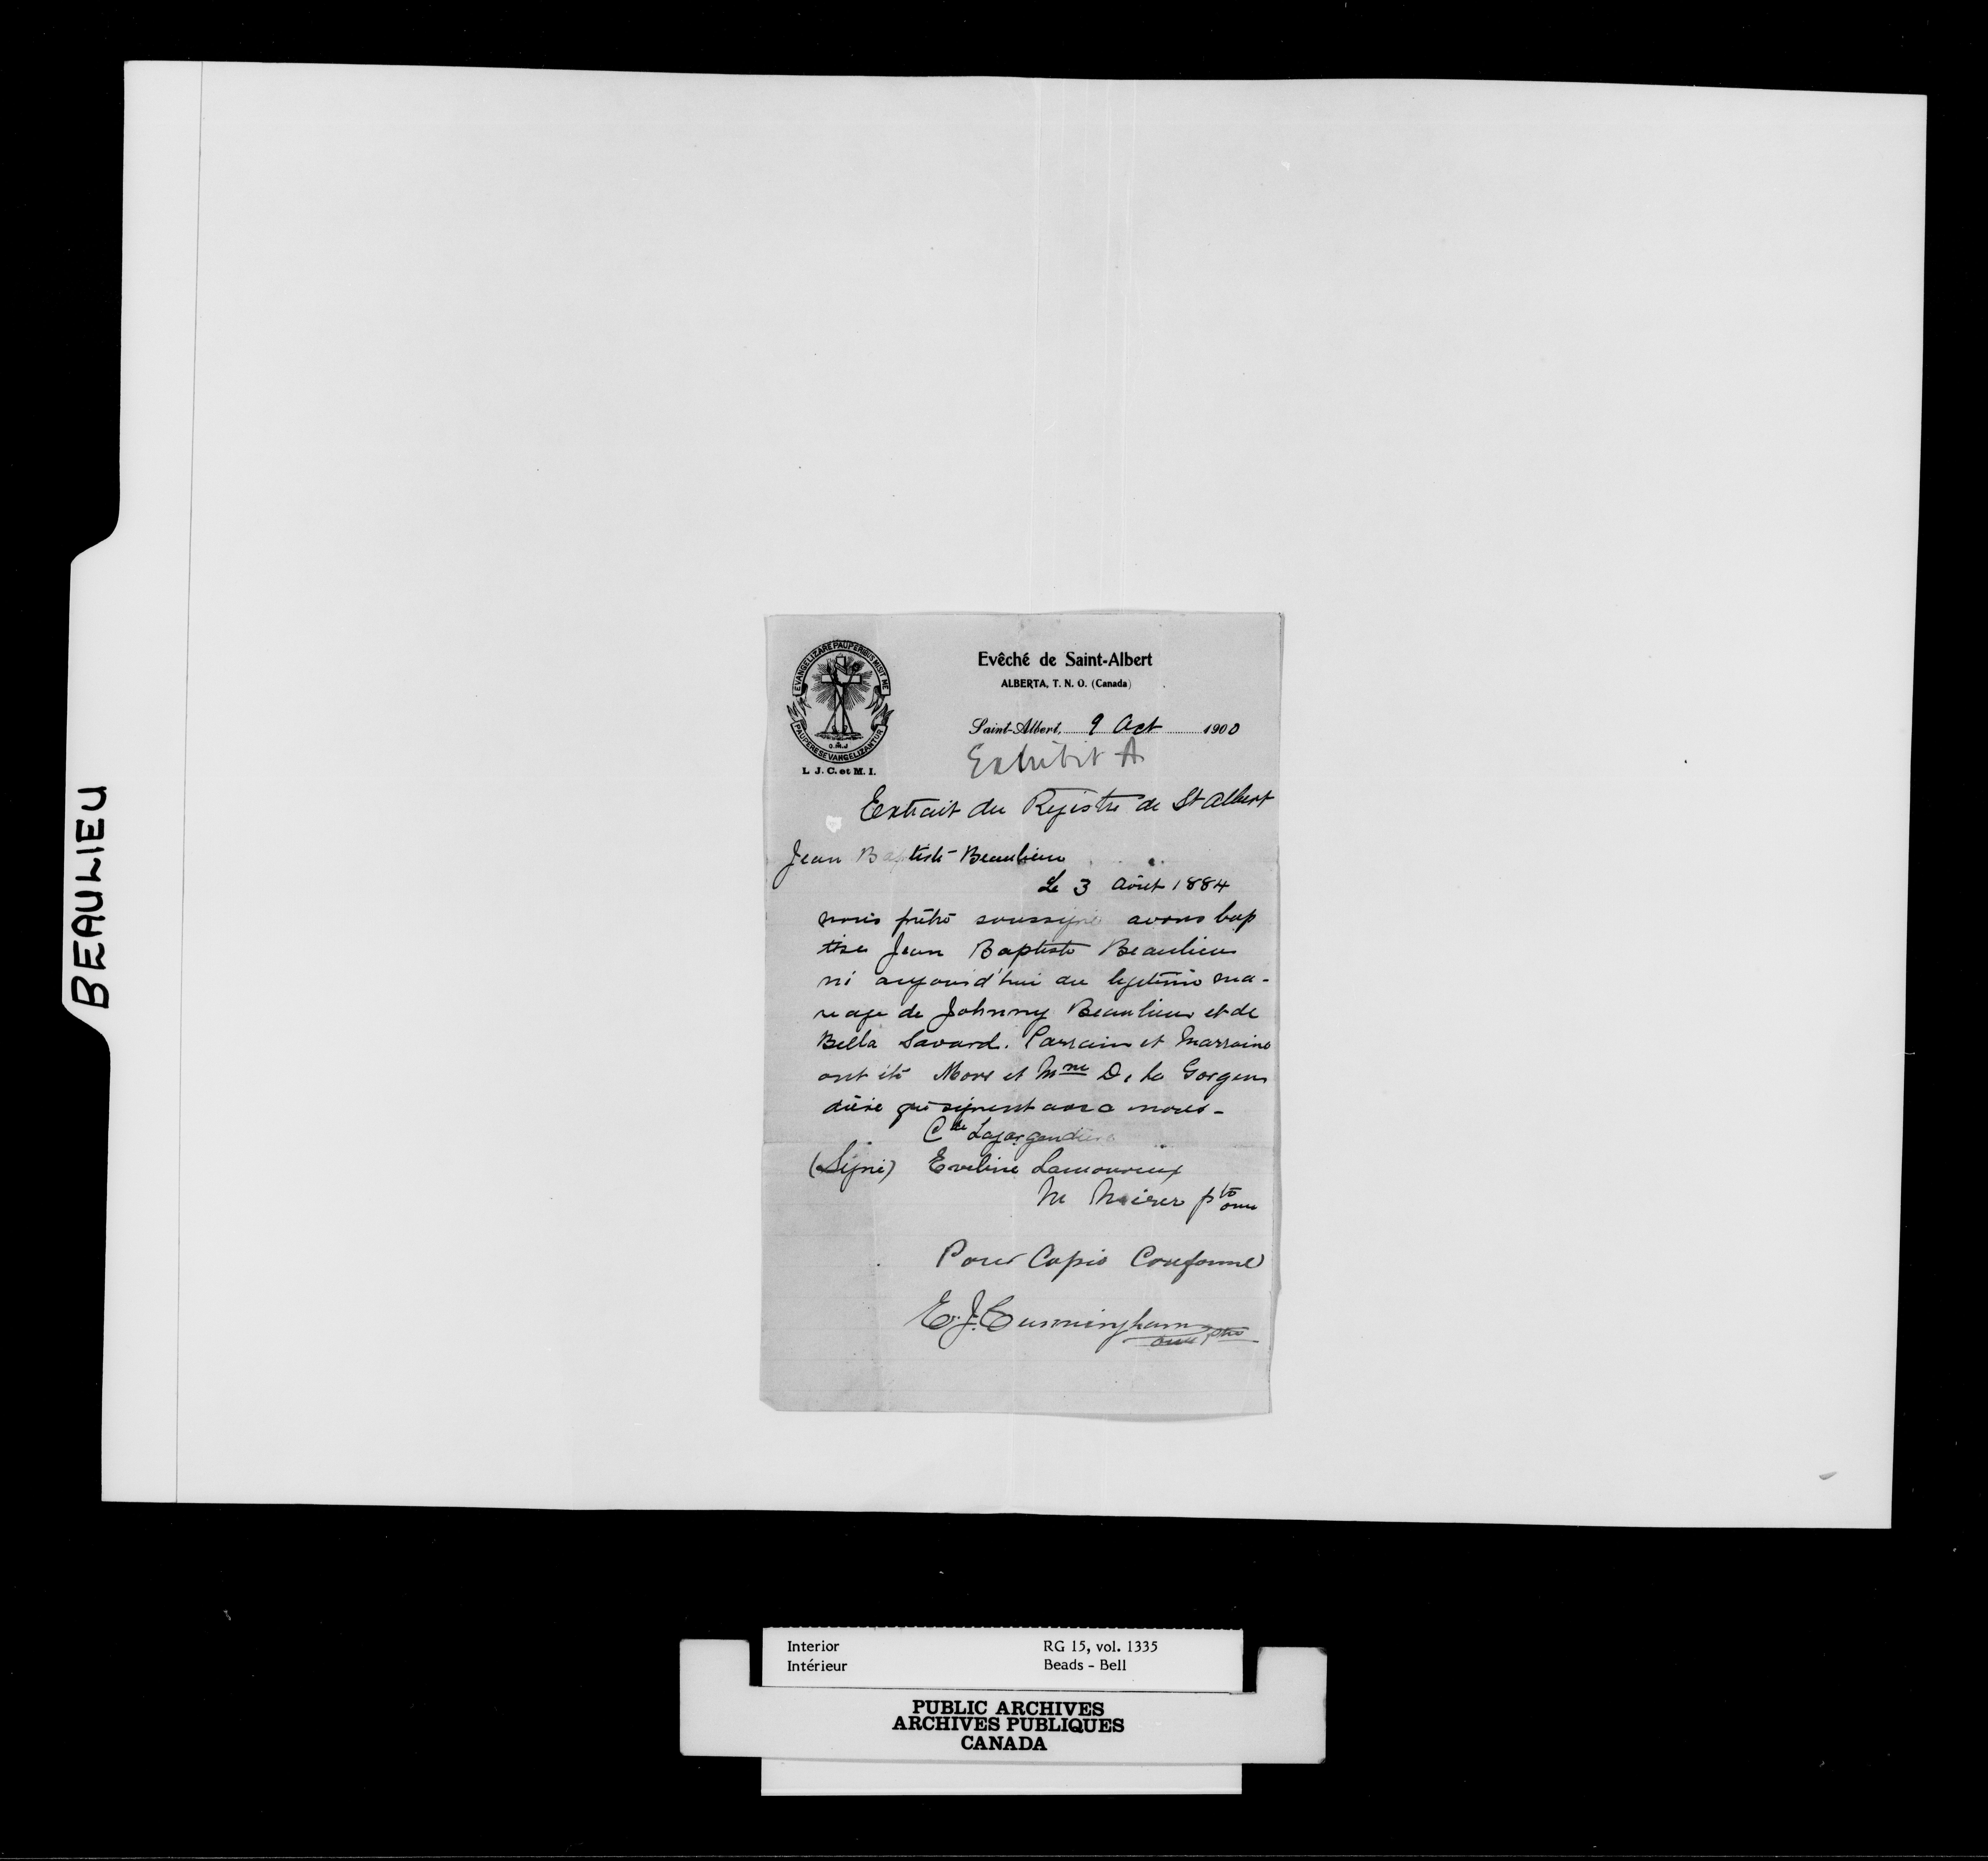 BEAULIEU
EVANGELIZARE PAUPERIBUS MISIT ME
PAUPERES EVANGELIZANTUR
O.M.J
L. J. C. et M. I.
Evêché de Saint-Albert
ALBERTA, T. N. O. (Canada)
Saint-Albert, 9 Oct 1900
Exhibit A
Extrait du Registre de St Albert
Jean Baptiste Beaulieu
Le 3 Août 1884
nous prêtre soussigné avons bap
tise Jean Baptiste Beaulieu
né aujourd'hui du legitime ma-
riage de Johnny Beaulieu et de
Bella Savard. Parrain et Marraine
ont été Monr et Mme De la Gorgen
dière qui signent avec nous-
Cte Lagorgendière
(Signé) Eveline Lamoureux
M Merer ptre omi
Pour Copie Conforme
E. J. Cunningham
omi ptre
Interior
Intérieur
RG 15, vol. 1335
Beads - Bell
PUBLIC ARCHIVES
ARCHIVES PUBLIQUES
CANADA